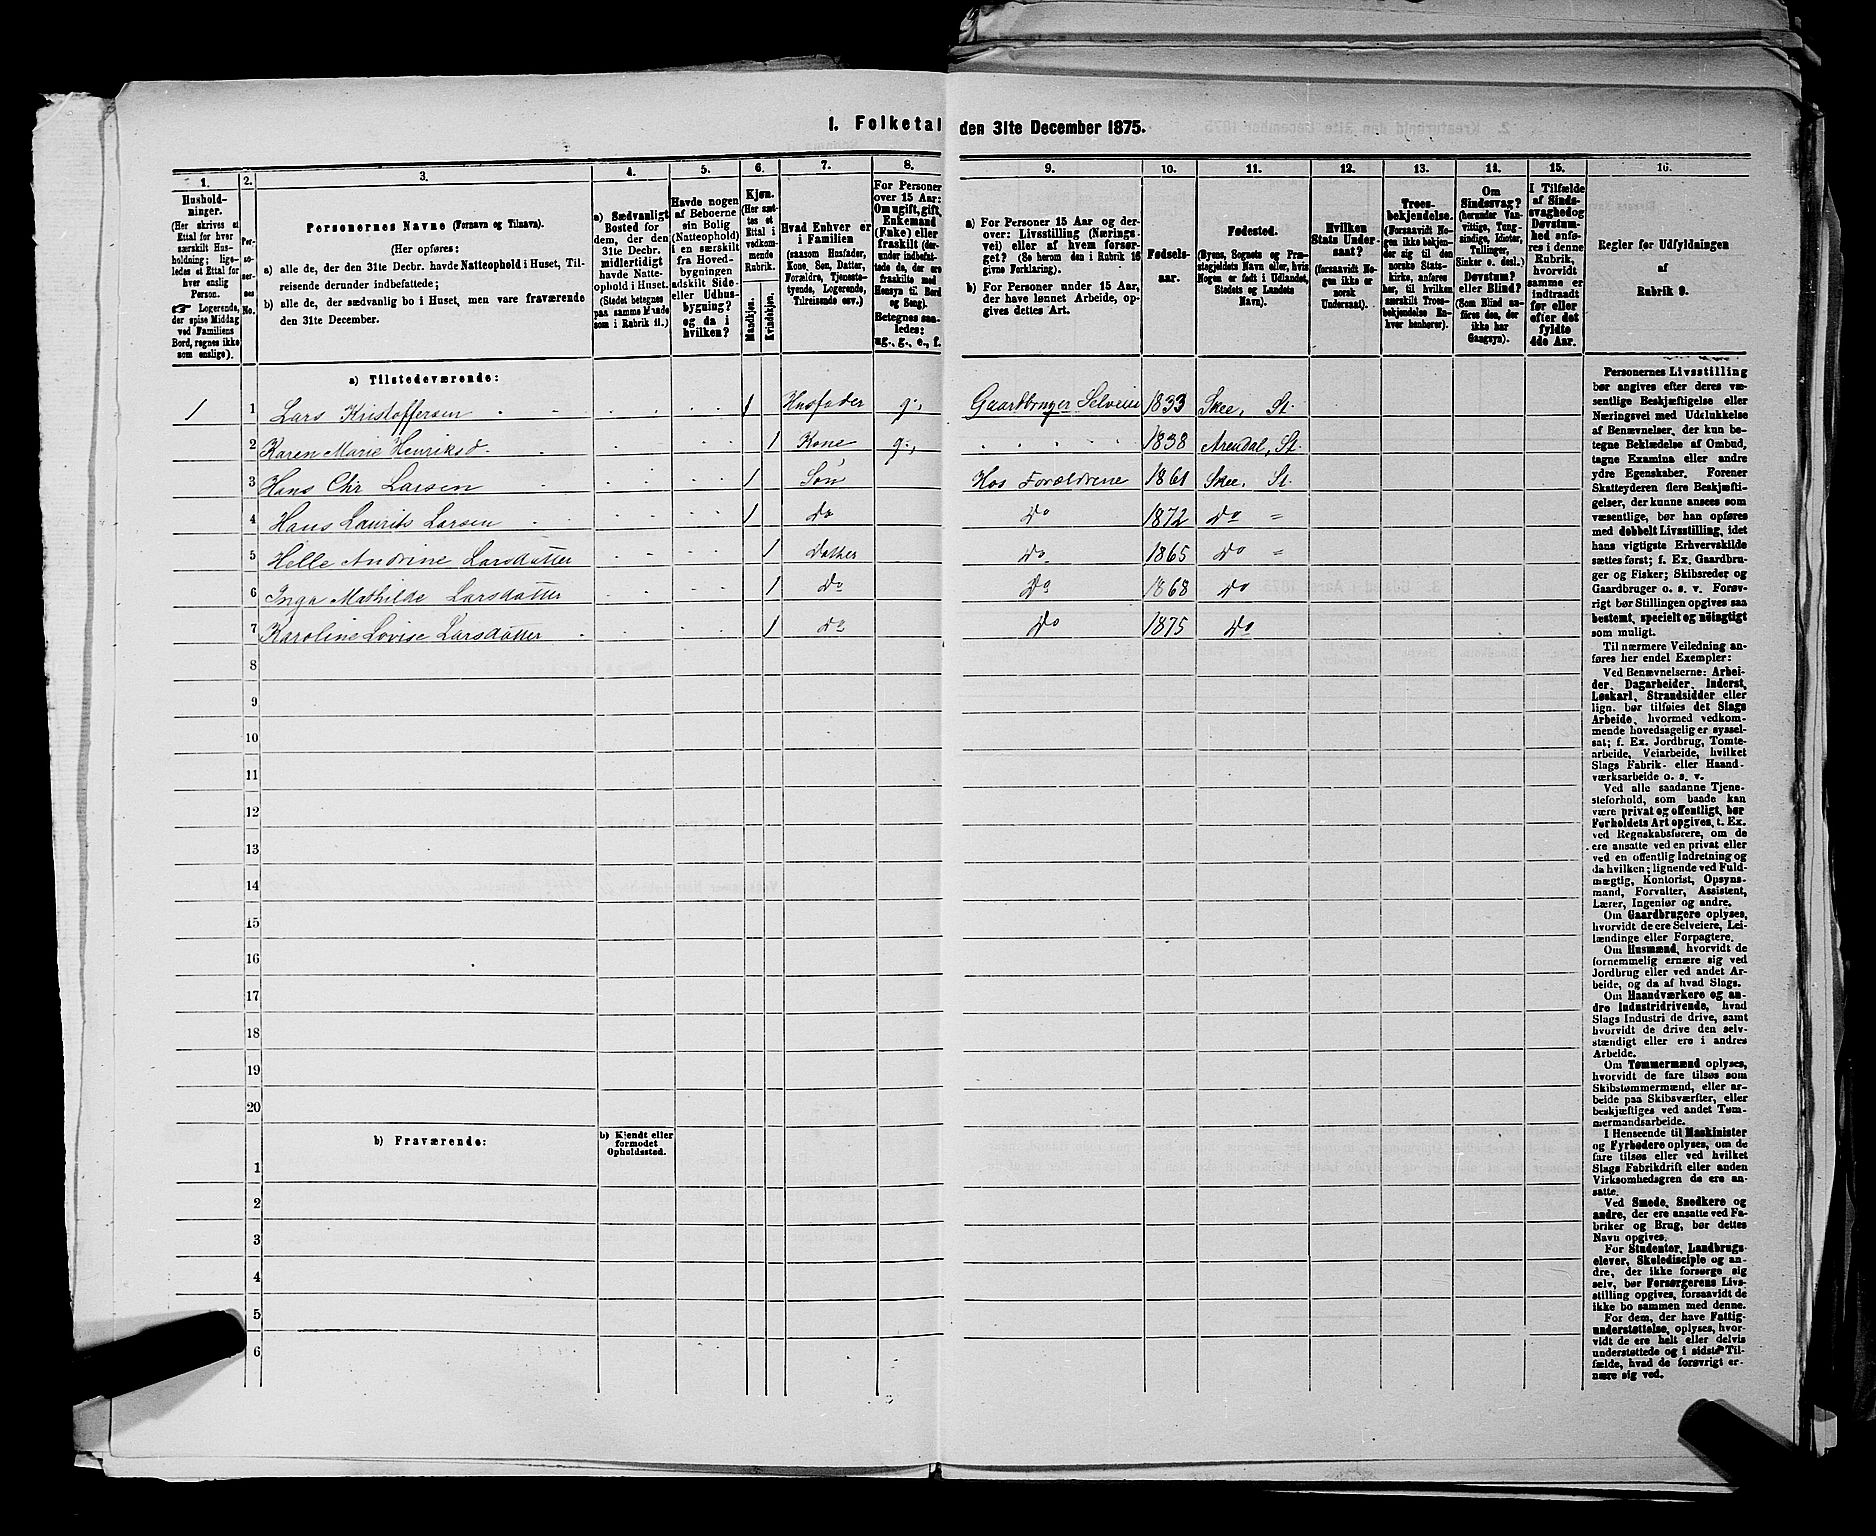 1. Folketal den 31te December 1875.
1. 2. 3. 4. 5. 6. 7. 8. 9. 10. 11. 12. 13. 14. 15. 16.
Husholdninger.
(Her skrives et
Ettal for hver
særskilt Husholdning;
ligeledes et Ettal for
hver enslig
Person.
☛ Logerende,
der spise Middag
ved Familiens
Bord, regnes ikke
som enslige).
Personernes No.
Personernes Navne (Fornavn og Tilnavn).
(Her opføres:
a) alle de, der den 31te Decbr. havde Natteophold i Huset, Tilreisende derunder indbefattede;
b) alle de, der sædvanlig bo i Huset, men vare fraværende
den 31te December.
a) Sædvanligt
Bosted for
dem, der den
31te Decbr.
midlertidigt
havde Natteophold
i Huset.
(Stedet betegnes
paa samme Maade
som i Rubrik 11.)
Havde nogen
af Beboerne
sin Bolig
(Natteophold)
i en særskilt
fra Hovedbygningen
adskilt Side- eller Udhusbygning?
og da i
hvilken?
Kjøn.
(Her sættes et
Ettal i
vedkommende
Rubrik.
Mandkjøn.
Kvindekjøn.
Hvad Enhver er
i Familien
(saasom Husfader,
Kone, Søn, Datter,
Forældre, Tjenestetyende,
Logerende,
Tilreisende osv.)
For Personer
over 15 Aar:
Om ugift, gift,
Enkemand
(Enke) eller
fraskilt (derunder indbefattede
da, de, der ere
fraskilte med
Hensyn til Bord
og Seng).
Betegnes saaledes:
ug., g., e., f.
a) For Personer 15 Aar og derover: Livsstilling (Næringsvei) eller af hvem forsørget? (Se herom den i Rubrik 16
givne Forklaring).
b) For Personer under 15 Aar,
der have lønnet Arbeide, opgives dettes Art.
Fødselsaar.
Fødested.
(Byens, Sognets og Præstegjeldets Navn eller, hvis
Nogen er født i Udlandet,
Stedets og Landets
Navn).
Hvilken
Stats Undersaat?
(forsaavidt Nogen ikke er
norsk
Undersaat).
Troesbekjendelse.
(Forsaavidt Nogen ikke bekjender sig til den
norske Statskirke, anføres
her, til hvilken
særskilt Troesbekjendelse Enhver henhører).
Om
Sindssvag?
(herunder Vanvittige, Tungsindige, Idioter,
Tullinger,
Sinker o. desl.)
Døvstum?
eller Blind?
(Som Blind anføres den, der
ikke har
Gangsyn).
I Tilfælde
af Sindssvaghed og
Døvstumhed anføres i denne
Rubrik,
hvorvidt
samme er
indtraadt
før eller
efter det
fyldte
4de Aar.
Regler for Udfyldningen
af
Rubrik 9.
a) Tilstedeværende:
1 1 Lars Kristoffersen 1 Husfader g., Gaardbruger Selveier 1833 Skee, St.
2 Karen Marie Henriksd. 1 Kone g., 1838 Arendal, St.
3 Hans Chr Larsen 1 Søn Hos Forældrene 1861 Skee, St.
4 Hans Laurits Larsen 1 Do Do 1872 Do "
5 Helle Andrine Larsdatter 1 Datter Do 1865 Do "
6 Inga Mathilde Larsdatter 1 Do Do 1868 Do
7 Karoline Lovise Larsdatter 1 Do Do 1875 Do
8
9
10
11
12
13
14
15
16
17
18
19
20
b) Fraværende:
b) Kjendt eller
formodet
Opholdssted.
1
2
3
4
5
6
Personernes Livsstilling
bør angives efter deres væsentlige Beskjæftigelse eller
Næringsvei med Udelukkelse
af Benævnelser, der kun betegne Beklædelse af Ombud,
tagne Examina eller andre
ydre Egenskaber. Forener
Skatteyderen flere Beskjæftigelser, der kunne ansees som
væsentlige, bør han opføres
med dobbelt Livsstilling, idet
hans vigtigste Erhvervskilde
sættes først; f. Ex. Gaardbruger og Fisker; Skibsreder og
Gaardbruger o. s. v. Forøvrigt bør Stillingen opgives saa
bestemt, specielt og nøiagtigt
som muligt.
Til nærmere Veiledning anføres her endel Exempler:
Ved Benævnelserne: Arbeider, Dagarbeider, Inderst,
Løskarl, Strandsidder eller
lign. bør tilføies det Slags
Arbeide, hvormed vedkommende hovedsagelig er sysselsat; f. Ex. Jordbrug, Tomtearbeide, Veiarbeide, hvilket
Slags Fabrik- eller Haandværksarbeide o. s. v.
Ved alle saadanne Tjenesteforhold, som baade kan
være privat og offentligt, bør
Forholdets Art opgives, t. Ex.
ved Regnskabsførere, om de
ere ansatte ved en privat eller
ved en offentlig Indretning og
da hvilken; lignende ved Fuldmægtig, Kontorist, Opsynsmand, Forvalter, Assistent,
Lærer, Ingeniør og andre.
Om Gaardbrugere oplyses,
hvorvidt de ere Selveiere, Leilændinge eller Forpagtere.
Om Husmænd, hvorvidt de
fornemmelig ernære sig ved
Jordbrug eller ved andet Arbeide, og da af hvad Slags.
Om Haandværkere og andre Industridrivende, hvad
Slags Industri de drive, samt
hvorvidt de drive den selvstændigt eller ere i andres
Arbeide.
Om Tømmermænd oplyses,
hvorvidt de fare tilsøs som
Skibstømmermænd, eller arbeide paa Skibsværfter, eller
beskjæftiges ved andet Tømmermandsarbeide.
I Henseende til Maskinister
og Fyrbødere oplyses, om de
fare tilsøs eller ved hvilket
Slags Fabrikdrift eller anden
Virksomhedsgren de ere ansatte.
Ved Smede, Snedkere og
andre, der ere ansatte ved Fabriker og Brug, bør dettes
Navn opgives.
For Studenter, Landbrugselever, Skoledisciple og andre, der ikke forsørge sig
selv, bør Forsørgerens Livsstilling opgives, forsaavidt de
ikke bo sammen med denne.
For dem, der have Fattigunderstøttelse, oplyses, hvorvidt de ere helt eller delvis
understøttede og i sidste Tilfælde, hvad de forøvrigt ernære sig ved.